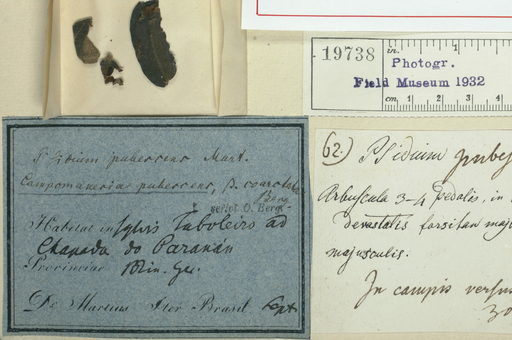 19738
in.
1
Photogr.
Field Museum 1932
cm. 1 2 3 4
Psidium pubescens Mart.
Campomanesia pubescens, β. coarctata
Berg
script. O. Berg.
Habitat in sylvis Taboleiro ad
Chapada do Paranán
Provinciae Min. Ger.
Dr Martius Iter Brasil Sept.
62.) Psidium pubes
Arbuscula 3-4 pedalis, in
devastatis forsitan maj
majusculis.
In campis versus
30